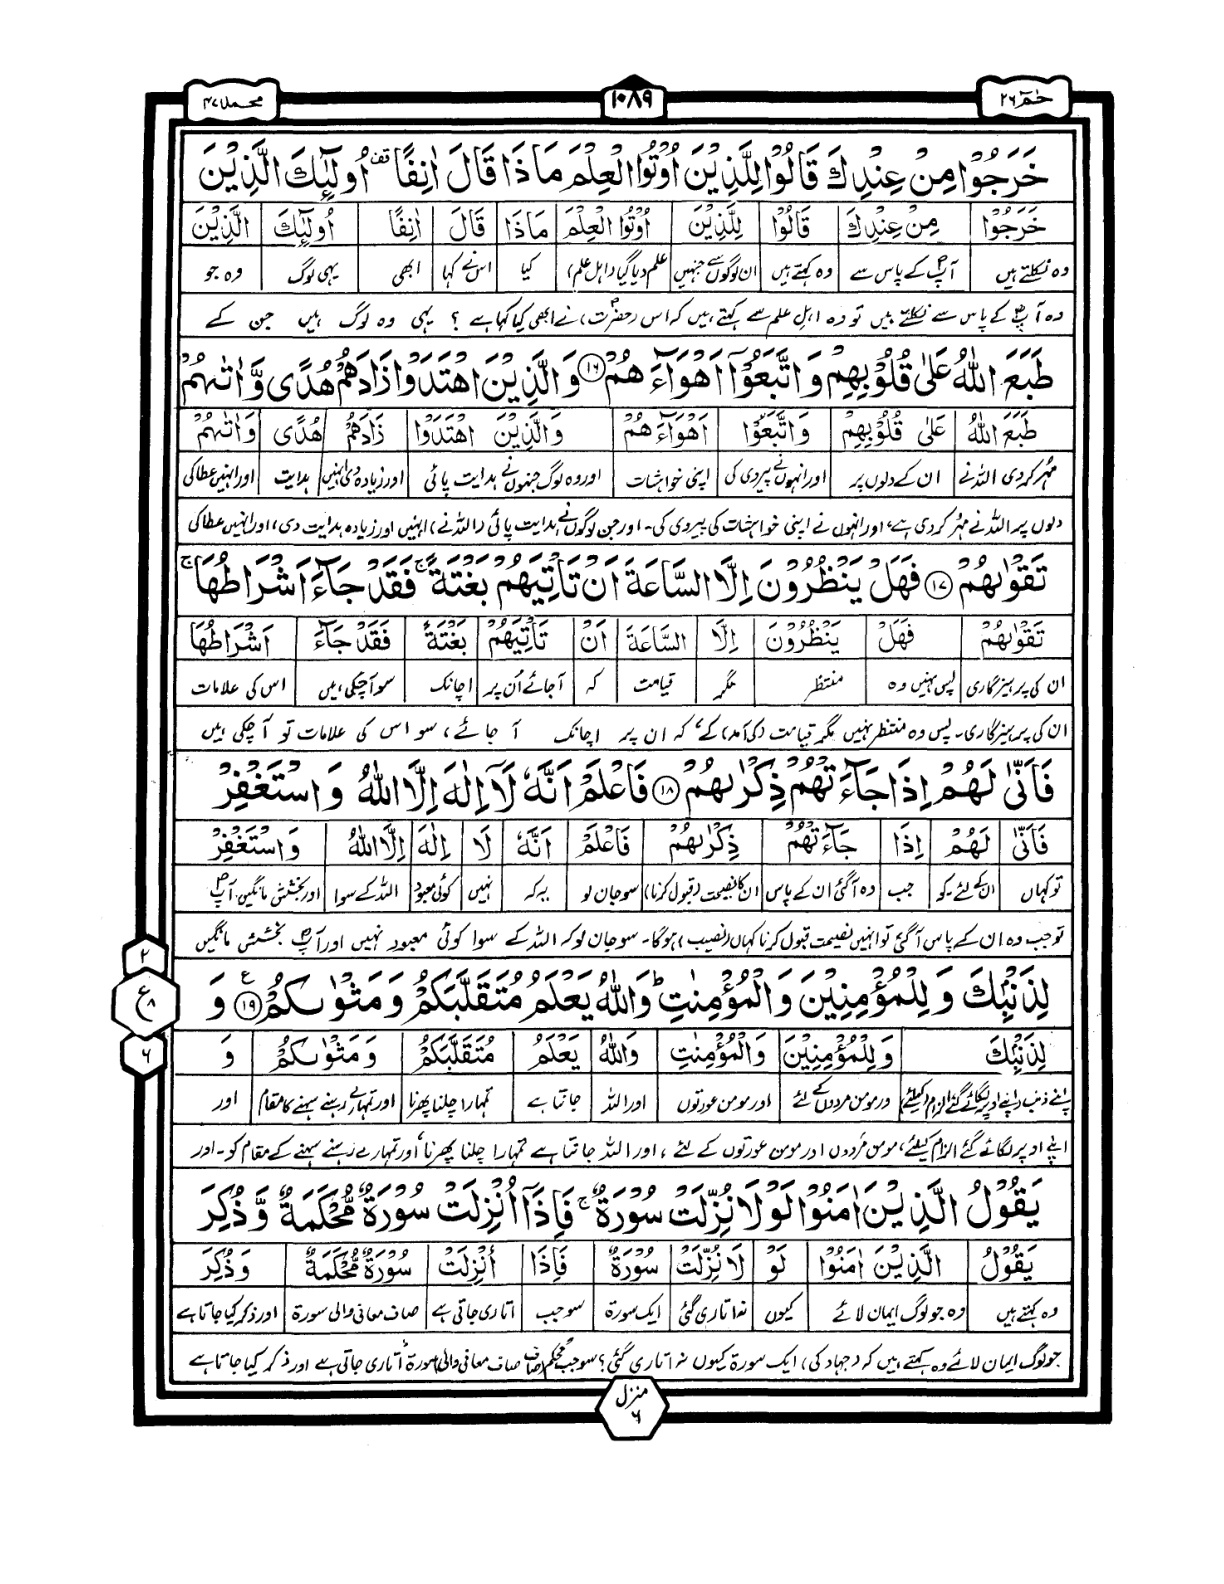 حٰمٓ ۲۶
۱۰۸۹
محمد ۴۷
خَرَجُوْا مِنْ عِنْدِكَ قَالُوْا لِلَّذِيْنَ اُوْتُوا الْعِلْمَ مَاذَا قَالَ اٰنِفًا ۫ اُولٰٓئِكَ الَّذِيْنَ
خَرَجُوْا مِنْ عِنْدِكَ قَالُوْا لِلَّذِيْنَ اُوْتُوا الْعِلْمَ مَاذَا قَالَ اٰنِفًا اُولٰٓئِكَ الَّذِيْنَ
وہ نکلتے ہیں آپؐ کے پاس سے وہ کہتے ہیں ان لوگوں سے جنہیں علم دیا گیا (اہل علم) کیا اس نے کہا ابھی یہی لوگ وہ جو
وہ آپؐ کے پاس سے نکلتے ہیں تو وہ اہل علم سے کہتے ہیں کہ اس (حضرتؐ) نے ابھی کیا کہا ہے ؟ یہی وہ لوگ ہیں جن کے
طَبَعَ اللّٰهُ عَلٰى قُلُوْبِهِمْ وَاتَّبَعُوْۤا اَهْوَآءَهُمْ ۱۶ وَالَّذِيْنَ اهْتَدَوْا زَادَهُمْ هُدًى وَّاٰتٰىهُمْ
طَبَعَ اللّٰهُ عَلٰى قُلُوْبِهِمْ وَاتَّبَعُوْۤا اَهْوَآءَهُمْ وَالَّذِيْنَ اهْتَدَوْا زَادَهُمْ هُدًى وَّاٰتٰىهُمْ
مہر کردی اللہ نے ان کے دلوں پر اور انہوں نے پیروی کی اپنی خواہشات اور وہ لوگ جنہوں نے ہدایت پائی اور زیادہ دی انہیں ہدایت اور انہیں عطا کی
دلوں پر اللہ نے مہر کردی ہے، اور انہوں نے اپنی خواہشات کی پیروی کی۔ اور جن لوگوں نے ہدایت پائی (اللہ نے) انہیں اور زیادہ ہدایت دی، اور انہیں عطا کی
تَقْوٰىهُمْ ۱۷ فَهَلْ يَنْظُرُوْنَ اِلَّا السَّاعَةَ اَنْ تَاْتِيَهُمْ بَغْتَةً ۚ فَقَدْ جَآءَ اَشْرَاطُهَا ۚ
تَقْوٰىهُمْ فَهَلْ يَنْظُرُوْنَ اِلَّا السَّاعَةَ اَنْ تَاْتِيَهُمْ بَغْتَةً فَقَدْ جَآءَ اَشْرَاطُهَا
ان کی پرہیزگاری پس نہیں وہ منتظر مگر قیامت کہ آجائے اُن پر اچانک سو آچکی ہیں اس کی علامات
ان کی پرہیزگاری۔ پس وہ منتظر نہیں مگر قیامت (کی آمد) کے کہ ان پر اچانک آ جائے، سو اس کی علامات تو آچکی ہیں
فَاَنّٰى لَهُمْ اِذَا جَآءَتْهُمْ ذِكْرٰىهُمْ ۱۸ فَاعْلَمْ اَنَّهٗ لَاۤ اِلٰهَ اِلَّا اللّٰهُ وَاسْتَغْفِرْ
فَاَنّٰى لَهُمْ اِذَا جَآءَتْهُمْ ذِكْرٰىهُمْ فَاعْلَمْ اَنَّهٗ لَا اِلٰهَ اِلَّا اللّٰهُ وَاسْتَغْفِرْ
تو کہاں ان کے لئے۔ کو جب وہ آگئی ان کے پاس ان کا نصیحت (قبول کرنا) سو جان لو یہ کہ نہیں کوئی معبود اللہ کے سوا اور بخشش مانگیں آپؐ
تو جب وہ ان کے پاس آگئی تو انہیں نصیحت قبول کرنا کہاں (نصیب) ہوگا۔ سو جان لو کہ اللہ کے سوا کوئی معبود نہیں اور آپؐ بخشش مانگیں
لِذَنْۢبِكَ وَلِلْمُؤْمِنِيْنَ وَالْمُؤْمِنٰتِ ؕ وَاللّٰهُ يَعْلَمُ مُتَقَلَّبَكُمْ وَمَثْوٰىكُمْ ۱۹ وَ
۲
ع ۸
۶
لِذَنْۢبِكَ وَلِلْمُؤْمِنِيْنَ وَالْمُؤْمِنٰتِ وَاللّٰهُ يَعْلَمُ مُتَقَلَّبَكُمْ وَمَثْوٰىكُمْ وَ
اپنے ذنب (اپنے اوپر لگائے گئے الزام) کیلئے اور مومن مردوں کے لئے اور مومن عورتوں اور اللہ جانتا ہے تمہارا چلنا پھرنا اور تمہارے رہنے سہنے کا مقام اور
اپنے اوپر لگائے گئے الزام کیلئے، مومن مردوں اور مومن عورتوں کے لئے ، اور اللہ جانتا ہے تمہارا چلنا پھرنا، اور تمہارے رہنے سہنے کے مقام کو۔ اور
يَقُوْلُ الَّذِيْنَ اٰمَنُوْا لَوْلَا نُزِّلَتْ سُوْرَةٌ ۚ فَاِذَاۤ اُنْزِلَتْ سُوْرَةٌ مُّحْكَمَةٌ وَّذُكِرَ
يَقُوْلُ الَّذِيْنَ اٰمَنُوْا لَوْ لَا نُزِّلَتْ سُوْرَةٌ فَاِذَا اُنْزِلَتْ سُوْرَةٌ مُّحْكَمَةٌ وَذُكِرَ
وہ کہتے ہیں وہ جو لوگ ایمان لائے کیوں نہ اتاری گئی ایک سورۃ سو جب اتاری جاتی ہے صاف معانی والی سورۃ اور ذکر کیا جاتا ہے
جو لوگ ایمان لائے وہ کہتے ہیں کہ (جہاد کی) ایک سورۃ کیوں نہ اتاری گئی؟ سو جب محکم صاف صاف معانی والی سورۃ اُتاری جاتی ہے اور ذکر کیا جاتا ہے
منزل ۶